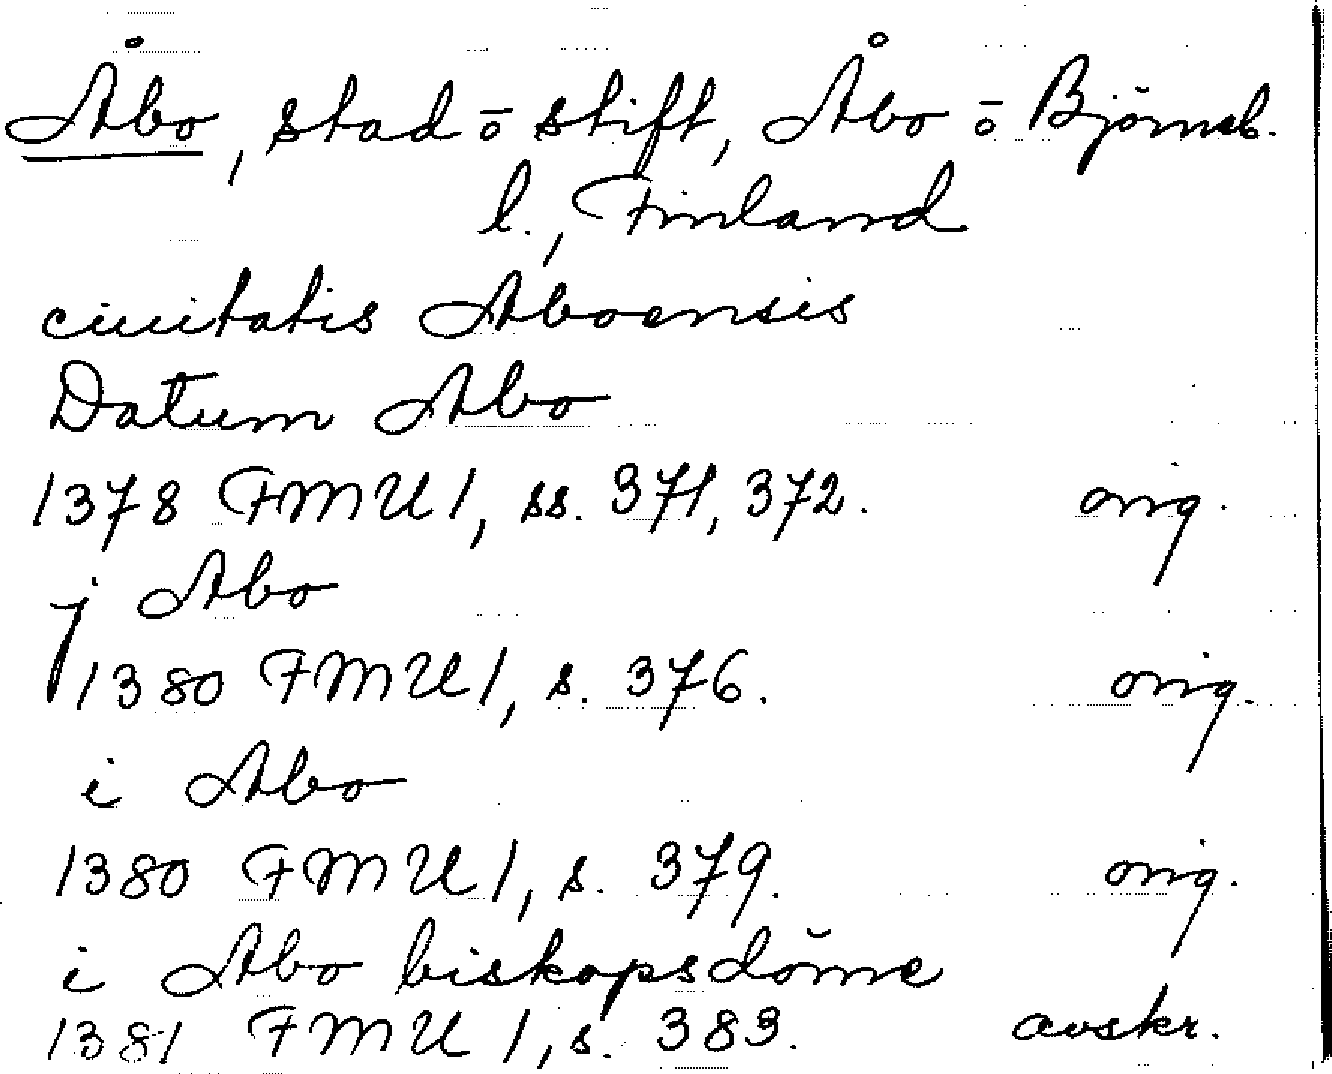 Åbo, stad o stift, Åbo o Björneb.
l., Finland
ciuitatis Aboensis
Datum Abo
1378 FMU 1, ss. 371, 372. orig.
j Abo
1380 FMU 1, s. 376. orig.
i Abo
1380 FMU 1, s. 379. orig.
i Abo biskopsdöme
1381 FMU 1, s. 383. avskr.